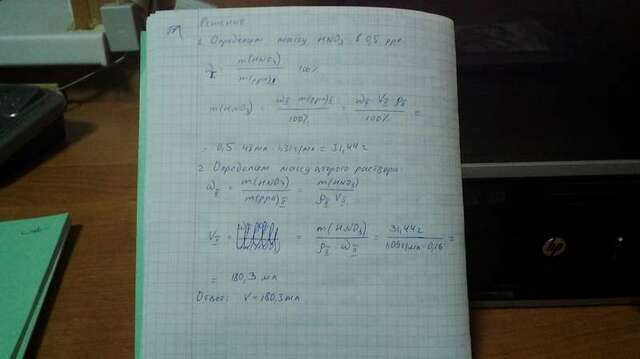 Решение
1. Определим массу HNO3 в 0,5 рра
m(HNO3)
m(рра)I
100%
m(HNO3) = ωI · m(рра)I / 100% = ωI · VI · ρI / 100% =
= 0,5 · 43 мл · 1,31 г/мл = 31,44 г
2. Определим массу второго раствора:
ωII = m(HNO3) / m(рра)II = m(HNO3) / ρII · VII
VII = m(HNO3) / ρII · ωII = 31,44 г / 1,09 г/мл · 0,16 =
= 180,3 мл
Ответ: V = 180,3 мл
hp